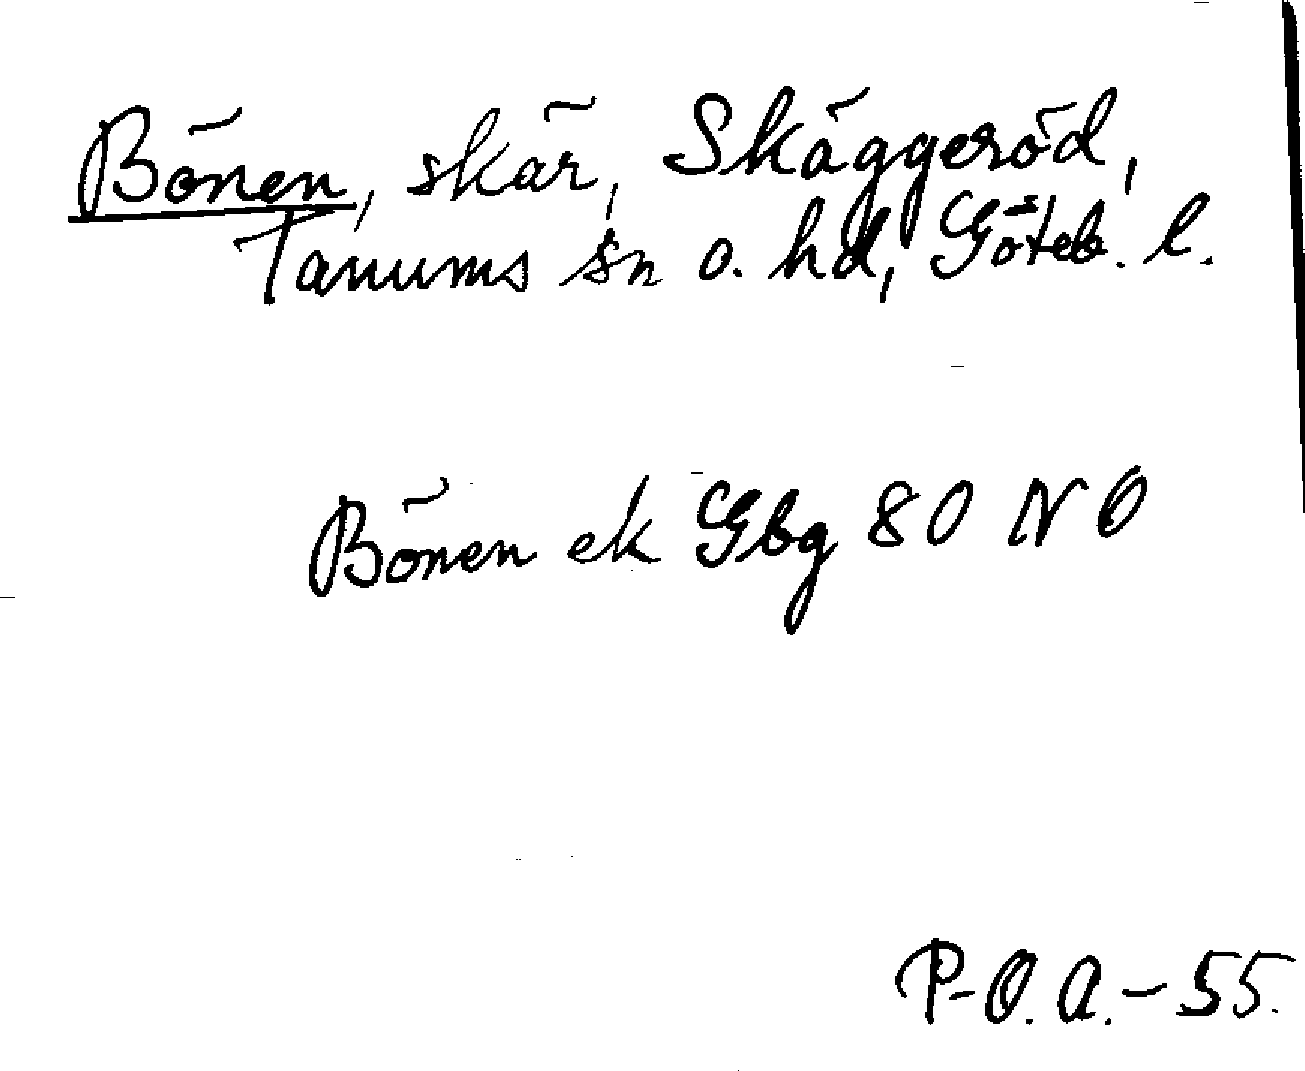 Bönen, skär, Skäggeröd,
Tanums sn o. hd, Göteb. l.
Bönen ek Gbg 80 NO
P-O. A. - 55.